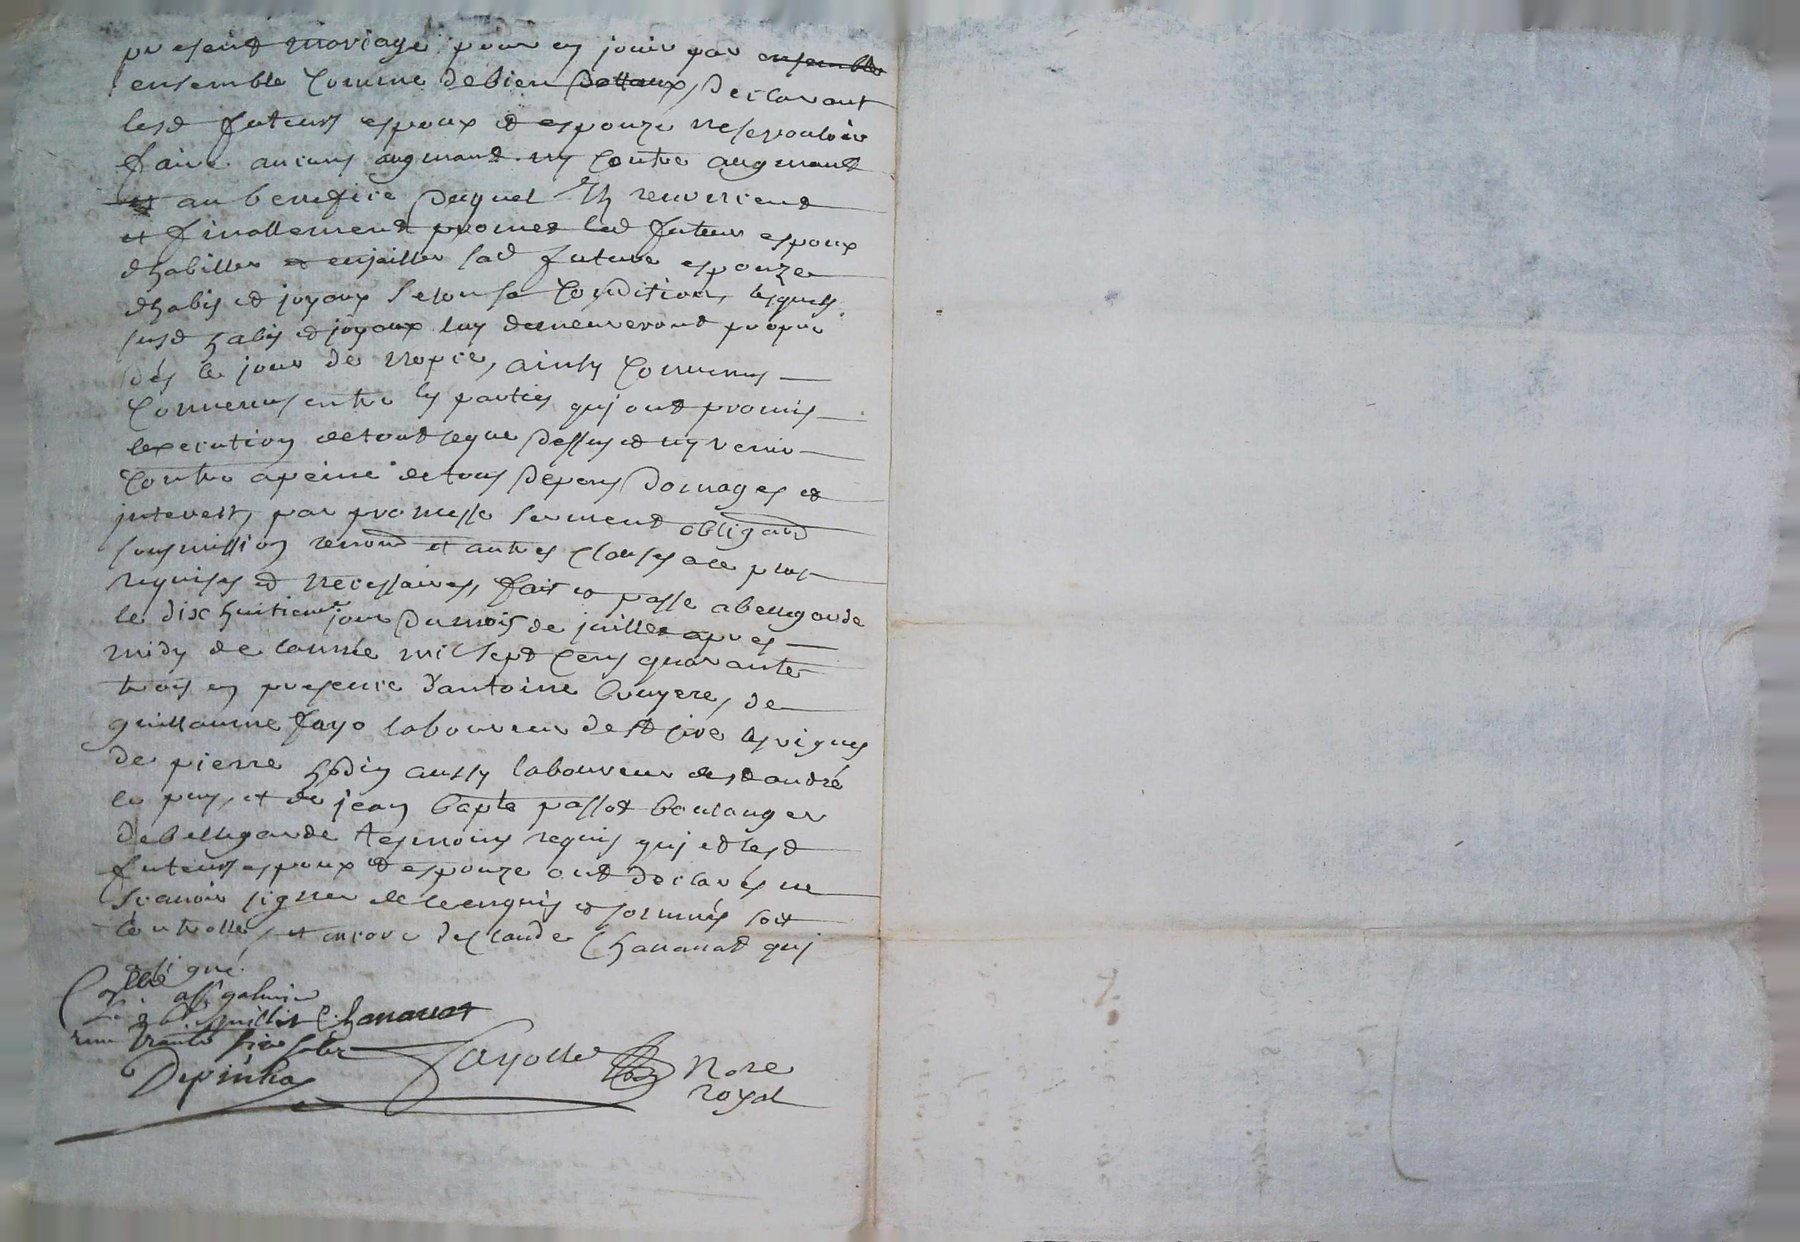 present mariage pour en jouir par ensemble
ensemble comme de bien dottaux, Declarant
lesd futeurs espoux et espouze ne se vouloir
faire aucuns augmand ny contre augmand
au benefice duquel Ils renoncent
et finallement promet led futeur espoux
dhabiller et enjailler lad future espouze
dhabis et joyaux selon sa condition, lesquels
susd habis et joyaux luy demeureront propre
dés le jour de nopce, ainsy convenus
convenus entre les parties qui ont promis
lexecution de tout ce que dessus et ny venir
contre a peine de tous depens domages et
interests par promesse serment obligaõn
soumission renonõn et autres clauses a ce plus
requises et necessaires, fait et passe a bellegarde
le dix huitieme jour du mois de juillet apres
midy de lannée mil sept cens quarante
trois en presence d'antoine bruyere, de
guillaume fayo laboureur de st cire les vignes
de pierre hodin aussy laboureur de st andré
le puy, et de jean bapte passot boulanger
de bellegarde tesmoins requis qui et lesd
futeurs espoux et espouze ont declarés ne
scavoir signer de ce enquis et sommés soit
controllé, et encore de claude Chanavat qui
a signé.
Collé a st galmier
juillet C. Chanavat
trente six sols
Depinhac fayolle Nore
royal